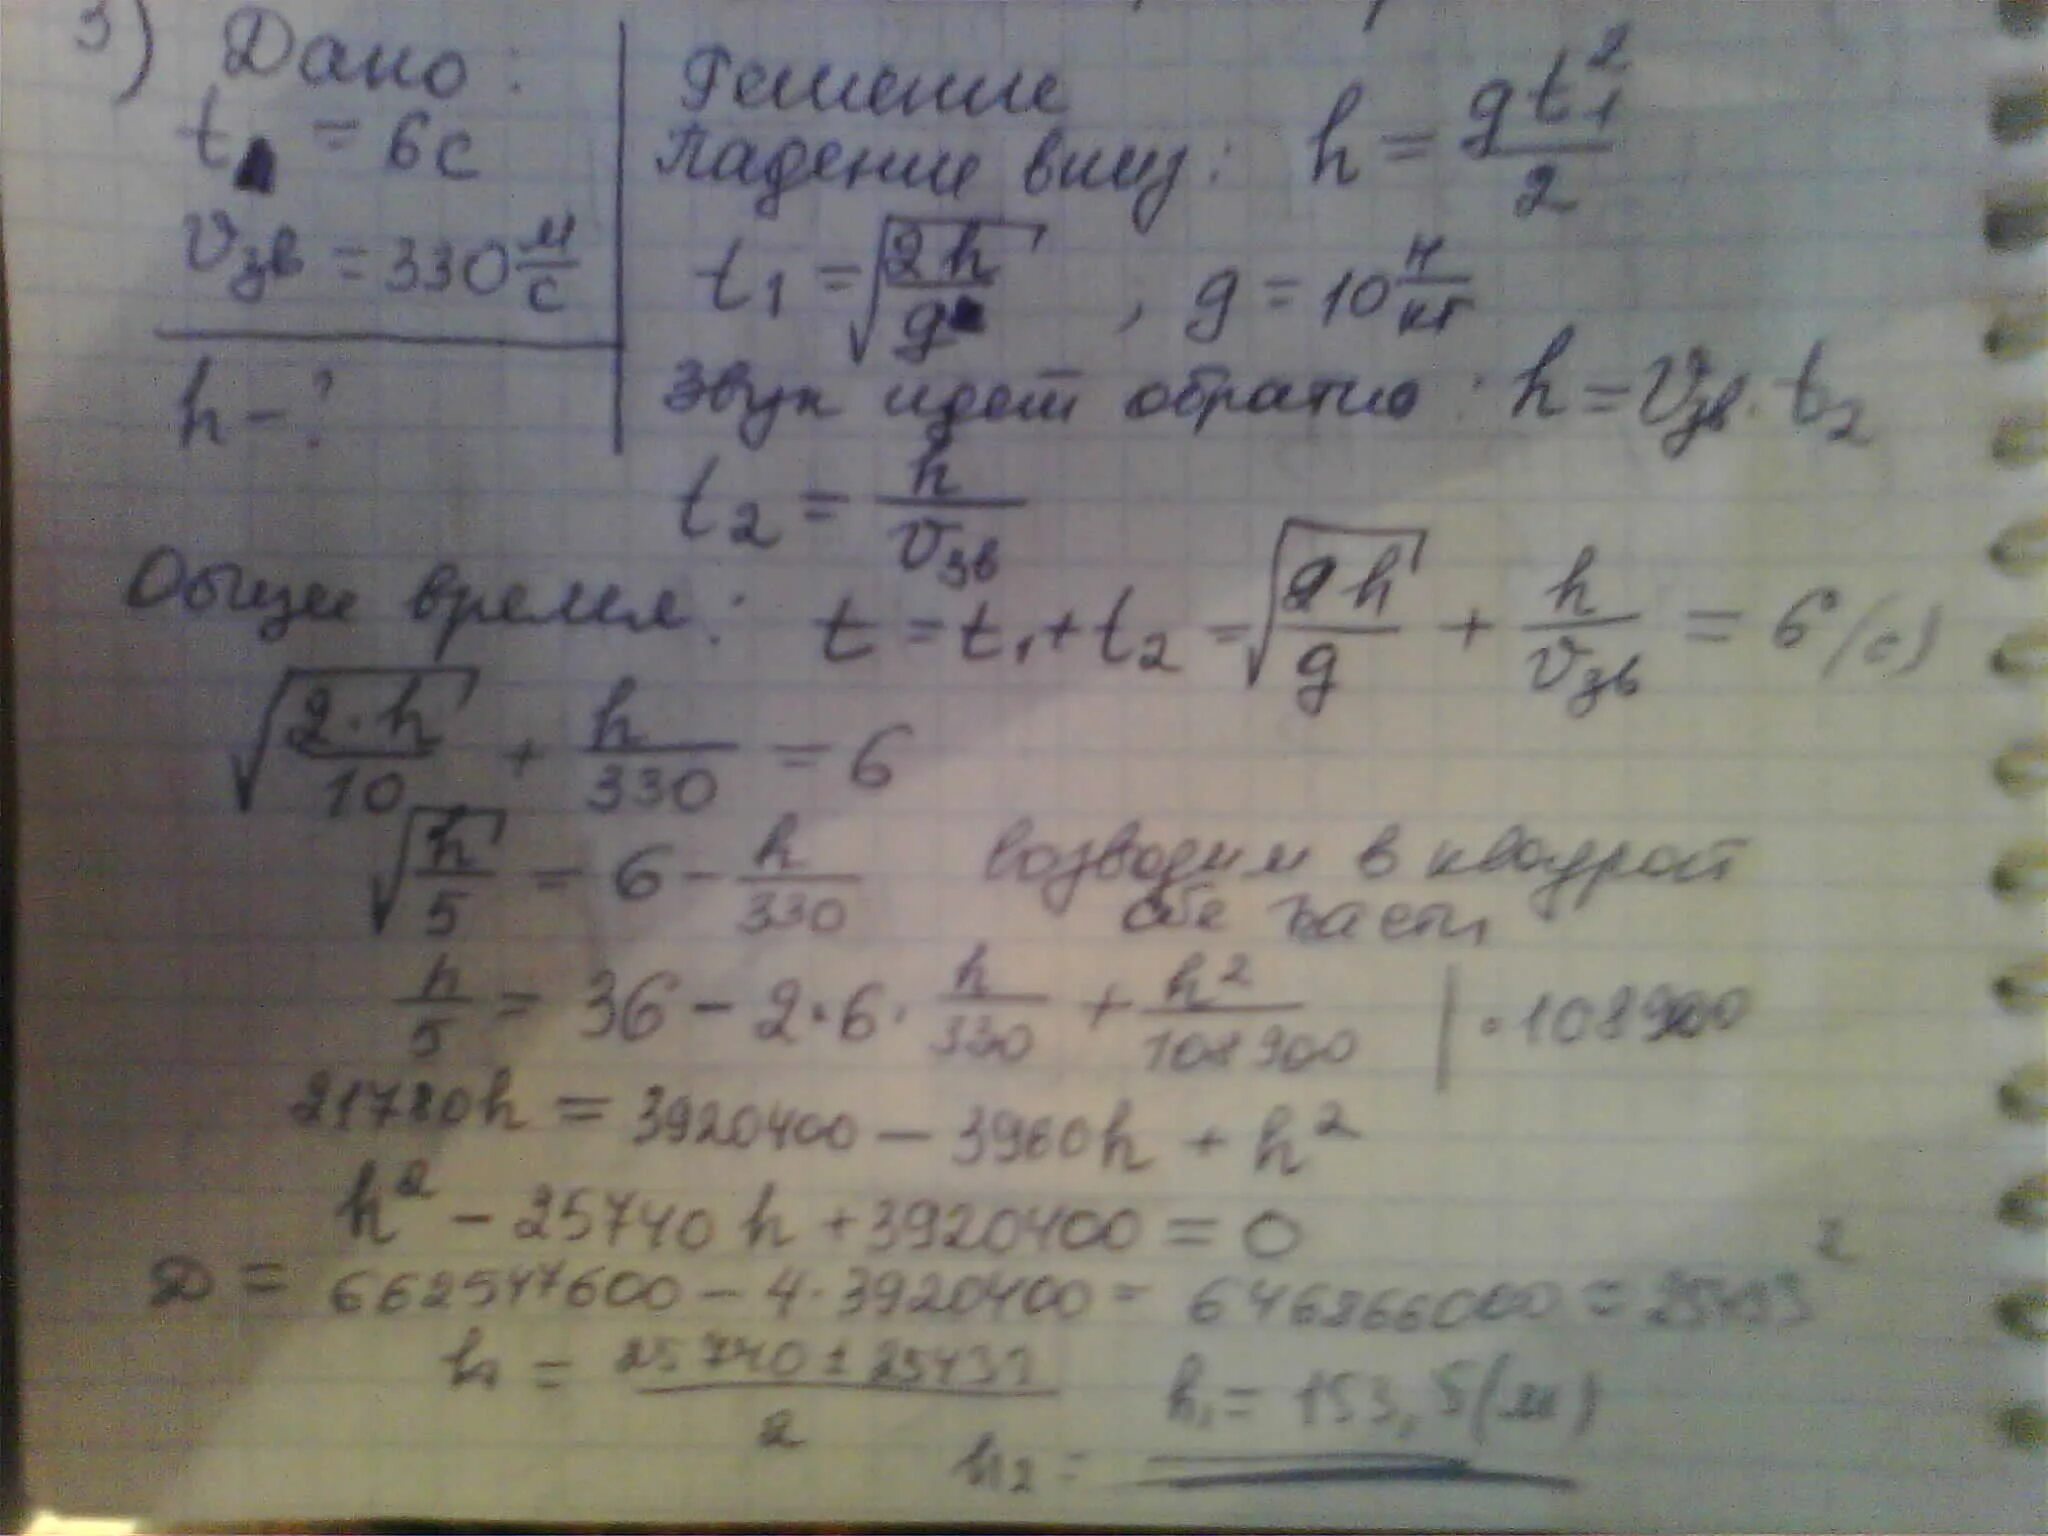 3) Дано:
t = 6с
vзв = 330 м/с
h - ?
Решение
Падение вниз: h = gt₁²/2
t₁ = √(2h/g), g = 10 Н/кг
Звук идет обратно: h = vзв · t₂
t₂ = h/vзв
Общее время: t = t₁ + t₂ = √(2h/g) + h/vзв = 6 (с)
√(2·h/10) + h/330 = 6
√(h/5) = 6 - h/330 возводим в квадрат
обе части
h/5 = 36 - 2·6·h/330 + h²/108900 | ·108900
21780h = 3920400 - 3960h + h²
h² - 25740h + 3920400 = 0
D = 662547600 - 4·3920400 = 646866000 = 25433²
h = (25740 ± 25433)/2
h₁ = 153,5(м)
h₂ =